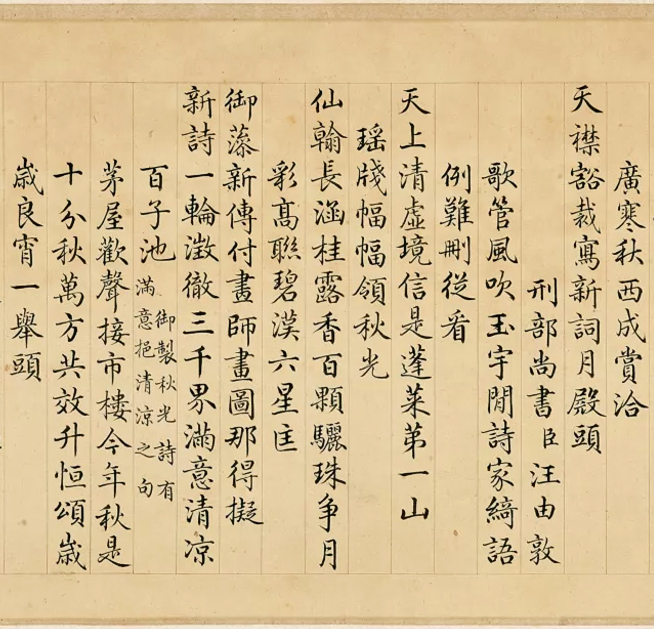 廣寒秋西成賞洽
天襟豁裁寫新詞月殿頭
刑部尚書臣汪由敦
歌管風吹玉宇閒詩家綺語
例難刪從看
天上清虛境信是蓬萊苐一山
瑶牋幅幅領秋光
仙翰長涵桂露香百顆驪珠争月
彩髙聯碧漢六星匡
御藻新傳付畫師畫圖那得擬
新詩一輪澂徹三千界滿意清凉
百子池
御製秋光詩有
滿意挹清凉之句
茅屋歡聲接市樓今年秋是
十分秋萬方共效升恒頌歲
歲良宵一舉頭